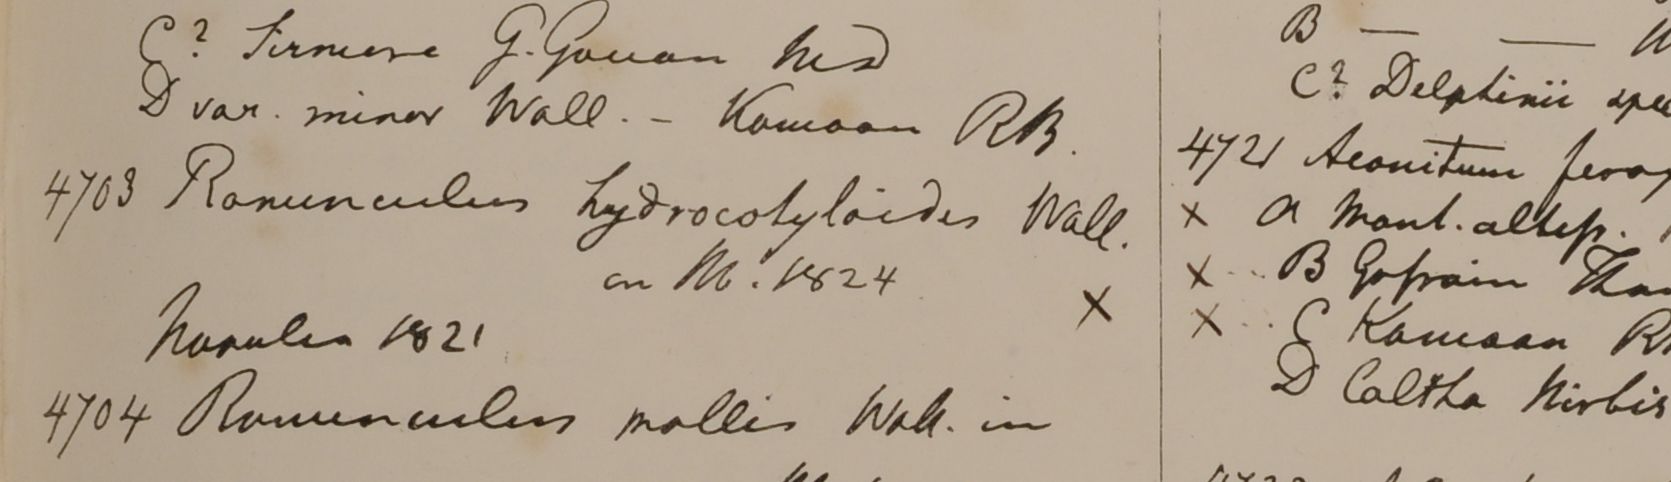 C? Sirmore G. Govan Msd
D var. minor Wall. - Kamaon RB.
4703 Ranunculus hydrocotyloides Wall.
in M. 1824
Napalia 1821 X
4704 Ranunculus mollis Wall. in
B — —
C? Delphinii
4721 Aconitum ferox
X A Mont. altiss.
X B Gossain
X C Kamaon
D Caltha Nirbis